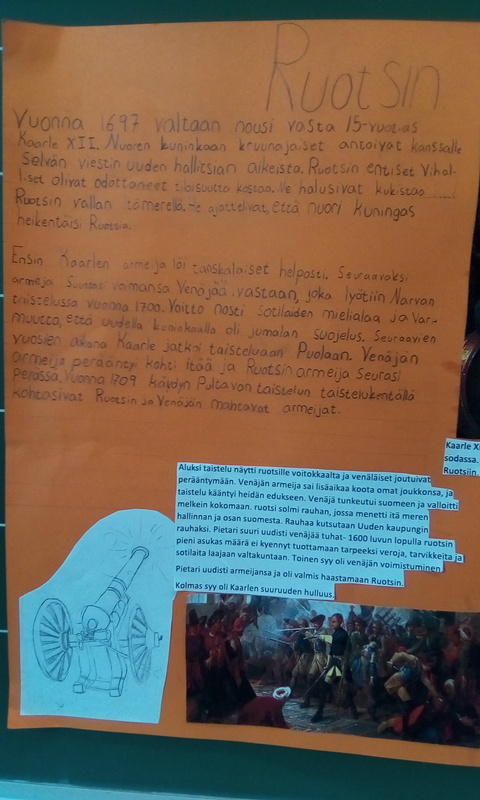 Ruotsin
Vuonna 1697 valtaan nousi vasta 15-vuotias
Kaarle XII. Nuoren kuninkaan kruunajaiset antoivat kansalle
Selvän viestin uuden hallitsian aikeista. Ruotsin entiset vihol-
liset olivat odottaneet tilaisuutta kostaa. He halusivat kukistaa
Ruotsin vallan Itämerellä. He ajattelivat, että nuori kuningas
heikentäisi Ruotsia.
Ensin Kaarlen armeija löi tanskalaiset helposti. Seuraavaksi
armeija suuntasi voimansa Venäjää vastaan, joka lyötiin Narvan
taistelussa vuonna 1700. Voitto nosti sotilaiden mielialaa ja var-
muutta, että uudella kuninkaalla oli jumalan suojelus. Seuraavien
vuosien aikana Kaarle jatkoi taisteluaan Puolaan. Venäjän
armeija perääntyi kohti itää ja Ruotsin armeija seurasi
perässä. Vuonna 1709 käydyn Pultavan taistelun taistelukentällä
kohtasivat Ruotsin ja Venäjän mahtavat armeijat.
Kaarle XI
sodassa.
Ruotsiin.
Aluksi taistelu näytti ruotsille voitokkaalta ja venäläiset joutuivat
perääntymään. Venäjän armeija sai lisäaikaa koota omat joukkonsa, ja
taistelu kääntyi heidän edukseen. Venäjä tunkeutui suomeen ja valloitti
melkein kokomaan. ruotsi solmi rauhan, jossa menetti itä meren
hallinnan ja osan suomesta. Rauhaa kutsutaan Uuden kaupungin
rauhaksi. Pietari suuri uudisti venäjää tuhat- 1600 luvun lopulla ruotsin
pieni asukas määrä ei kyennyt tuottamaan tarpeeksi veroja, tarvikkeita ja
sotilaita laajaan valtakuntaan. Toinen syy oli venäjän voimistuminen
Pietari uudisti armeijansa ja oli valmis haastamaan Ruotsin.
Kolmas syy oli Kaarlen suuruuden hulluus.